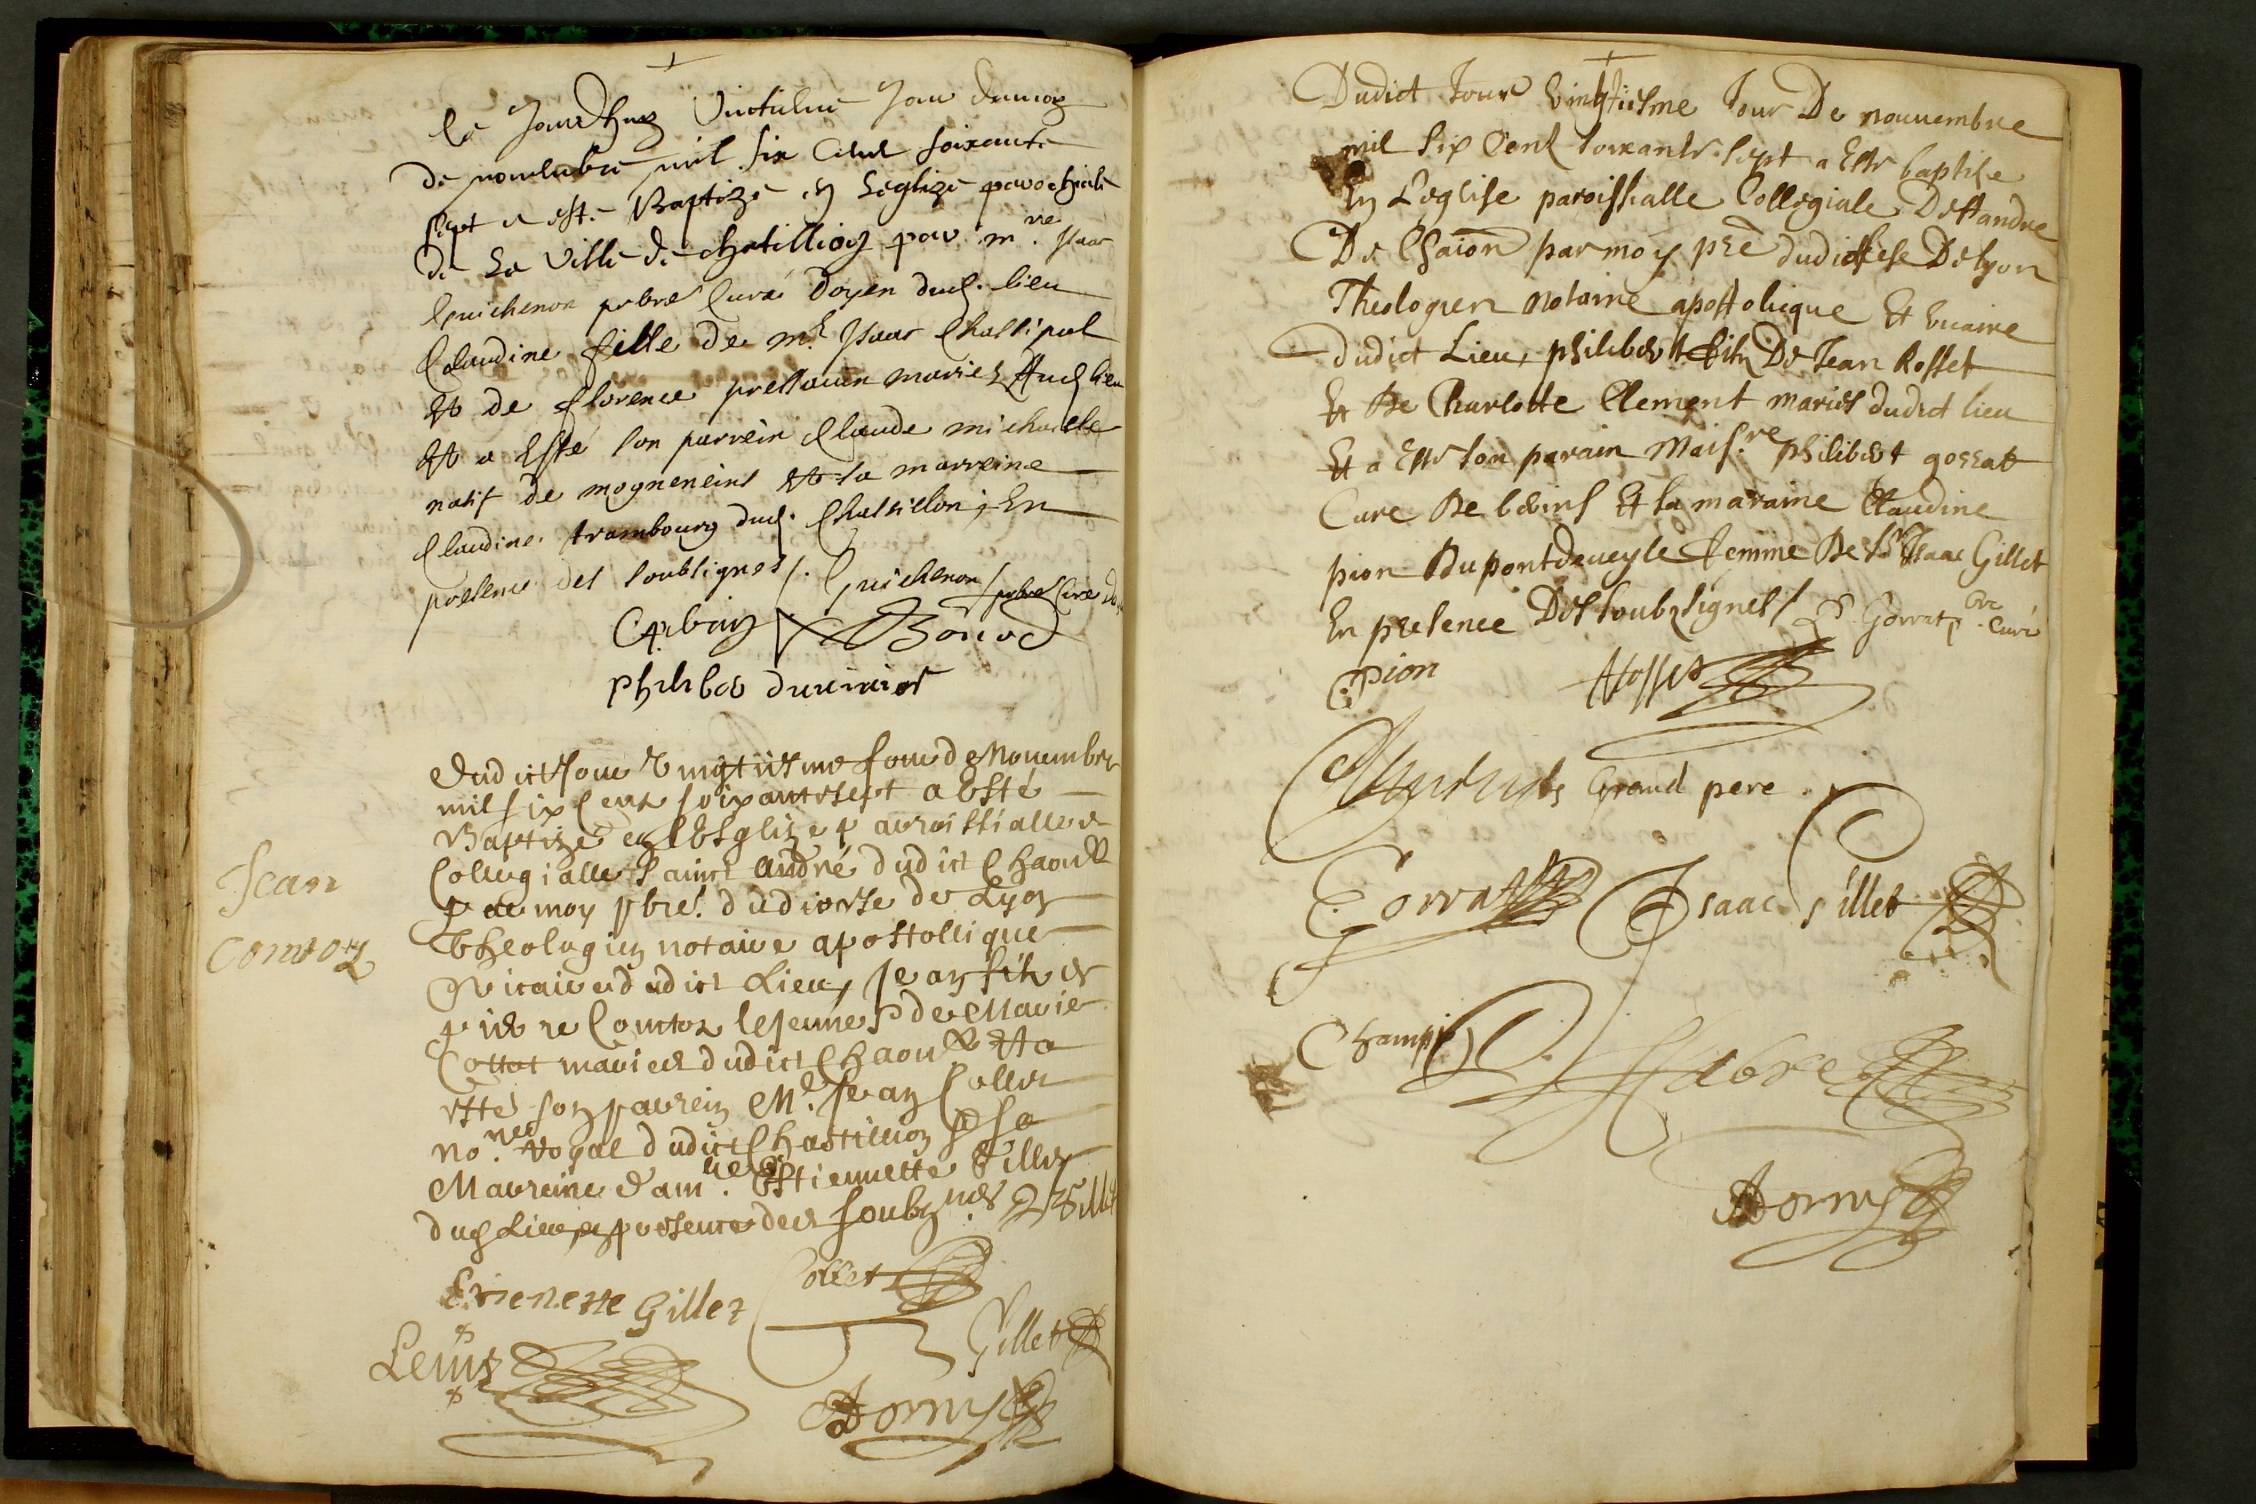 Ce Jourdhuy Jour du moy
de nouembre mil six Cent soixante
sept a esté Baptizé en Leglize parochialle
de La Ville de chatillion par mre Isaac
Guichenon pbre Curé Doyen dud. lieu
Claudine fille de mr Isaac Chastipol
Et de florence mariez Aud lieu
Et a Esté son parrein Claude michaelle
natif de mogneneins Et sa marreine
Claudine trambourg dud. Chastillon, En
presence des soubsignes /. Guichenon pbre Cure
Philiber
Dudict Jour Vingtiesme Jour de Nouembre
mil six Cent soixantesept a Esté
Baptizé en lEsglize parroissialle et
Collegialle Sainct André dudict Chaon
par moy pbre. dudiocese de Lyon
Theologien notaire apostollique
Vicaire dudict Lieu, Jean filz de
pierre Comtoz le Jeune & de Marie
Cottat maries dudict Chaon Et a
esté son parrein Mr. Jean Collet
nore. royal dudict Chastillon & sa
Marreine damlle. Estiennette Gillet
dud Lieu en presence des soubznes Gillet
Jean
Comtoz
Etienette Gillet
Collet
Gillet
Dudict Jour Vingtiesme Jour De nouuembre
mil Six Cent soixante sept a Este baptise
En L'eglise paroissialle Collegiale De St andre
De Chaion par moy pre dudiocese De lyon
Theologien notaire apostolique Et vicaire
dudict Lieu, philibert filz De Jean Rosset
Et De Charlotte Clement maries dudict lieu
Et a Este son parain Maisre philibert gorrat
Cure De Et sa maraine Claudine
pion Du pontdeueyle femme De Sr Isaac Gillet
En presence Des soubzsignes / P. Gorrat pbre Curé
C. pion
Rosset
Grand pere
Gorrat
Isaac Gillet
Champi
Fabre